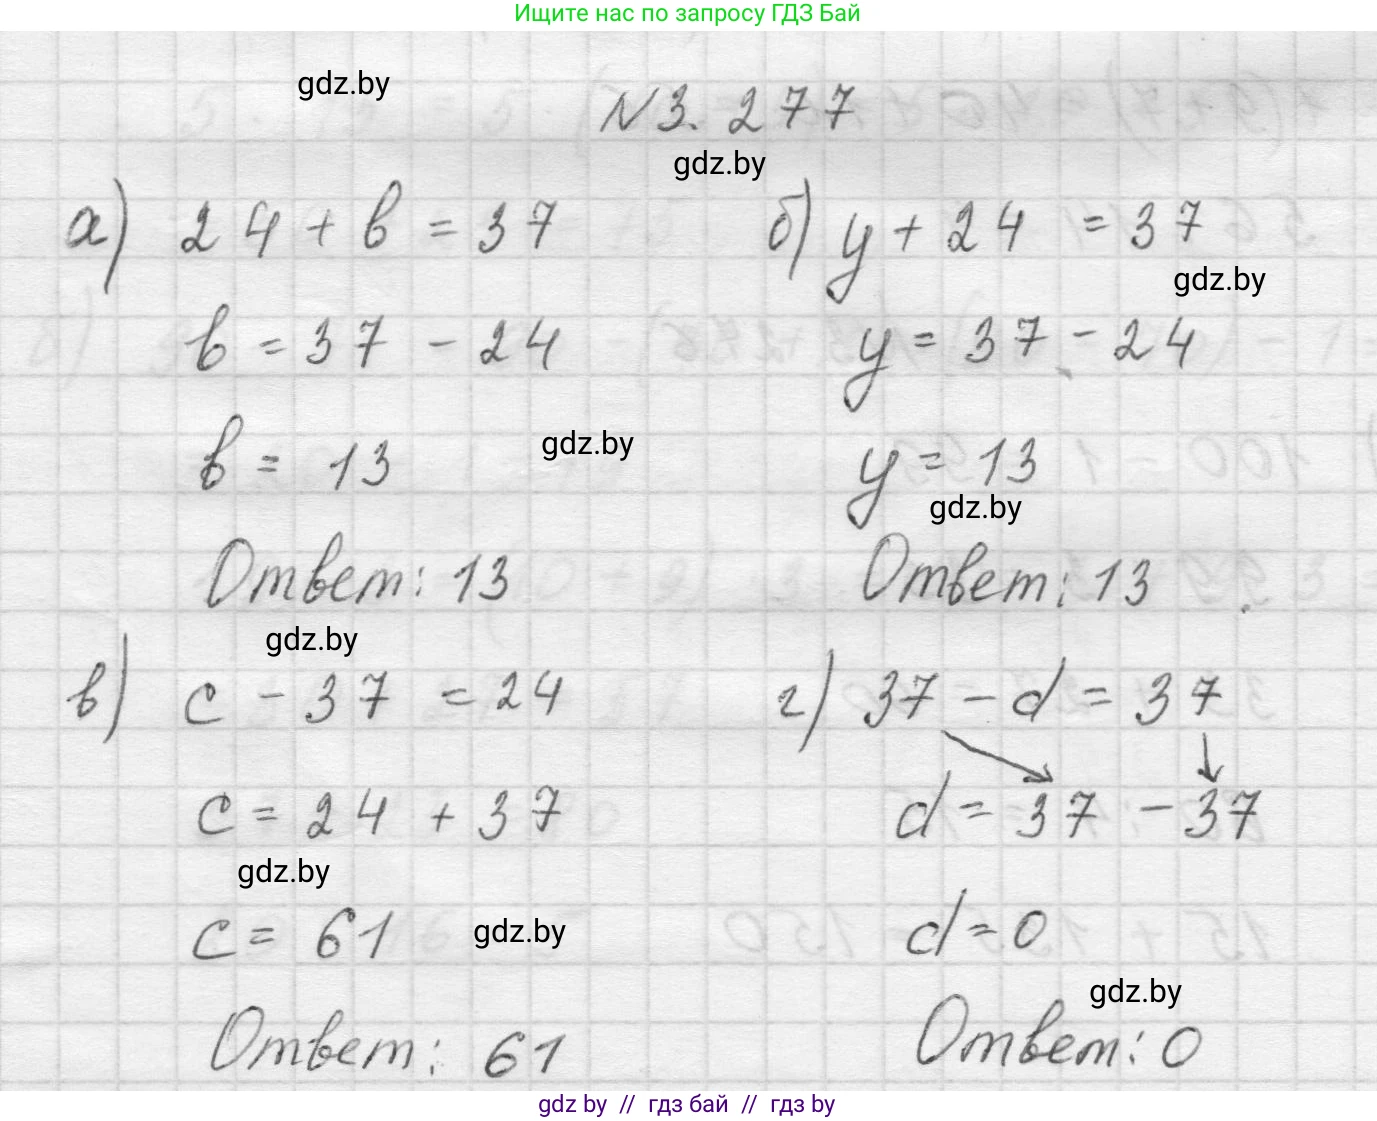 Ищите нас по запросу ГДЗ Бай
gdz.by
№3.277
gdz.by
а) 24 + b = 37
b = 37 - 24
b = 13
gdz.by
Ответ: 13
gdz.by
б) y + 24 = 37
gdz.by
y = 37 - 24
y = 13
gdz.by
Ответ: 13
в) c - 37 = 24
c = 24 + 37
gdz.by
c = 61
gdz.by
Ответ: 61
г) 37 - d = 37
d = 37 - 37
d = 0
gdz.by
Ответ: 0
gdz by // гдз бай // гдз by